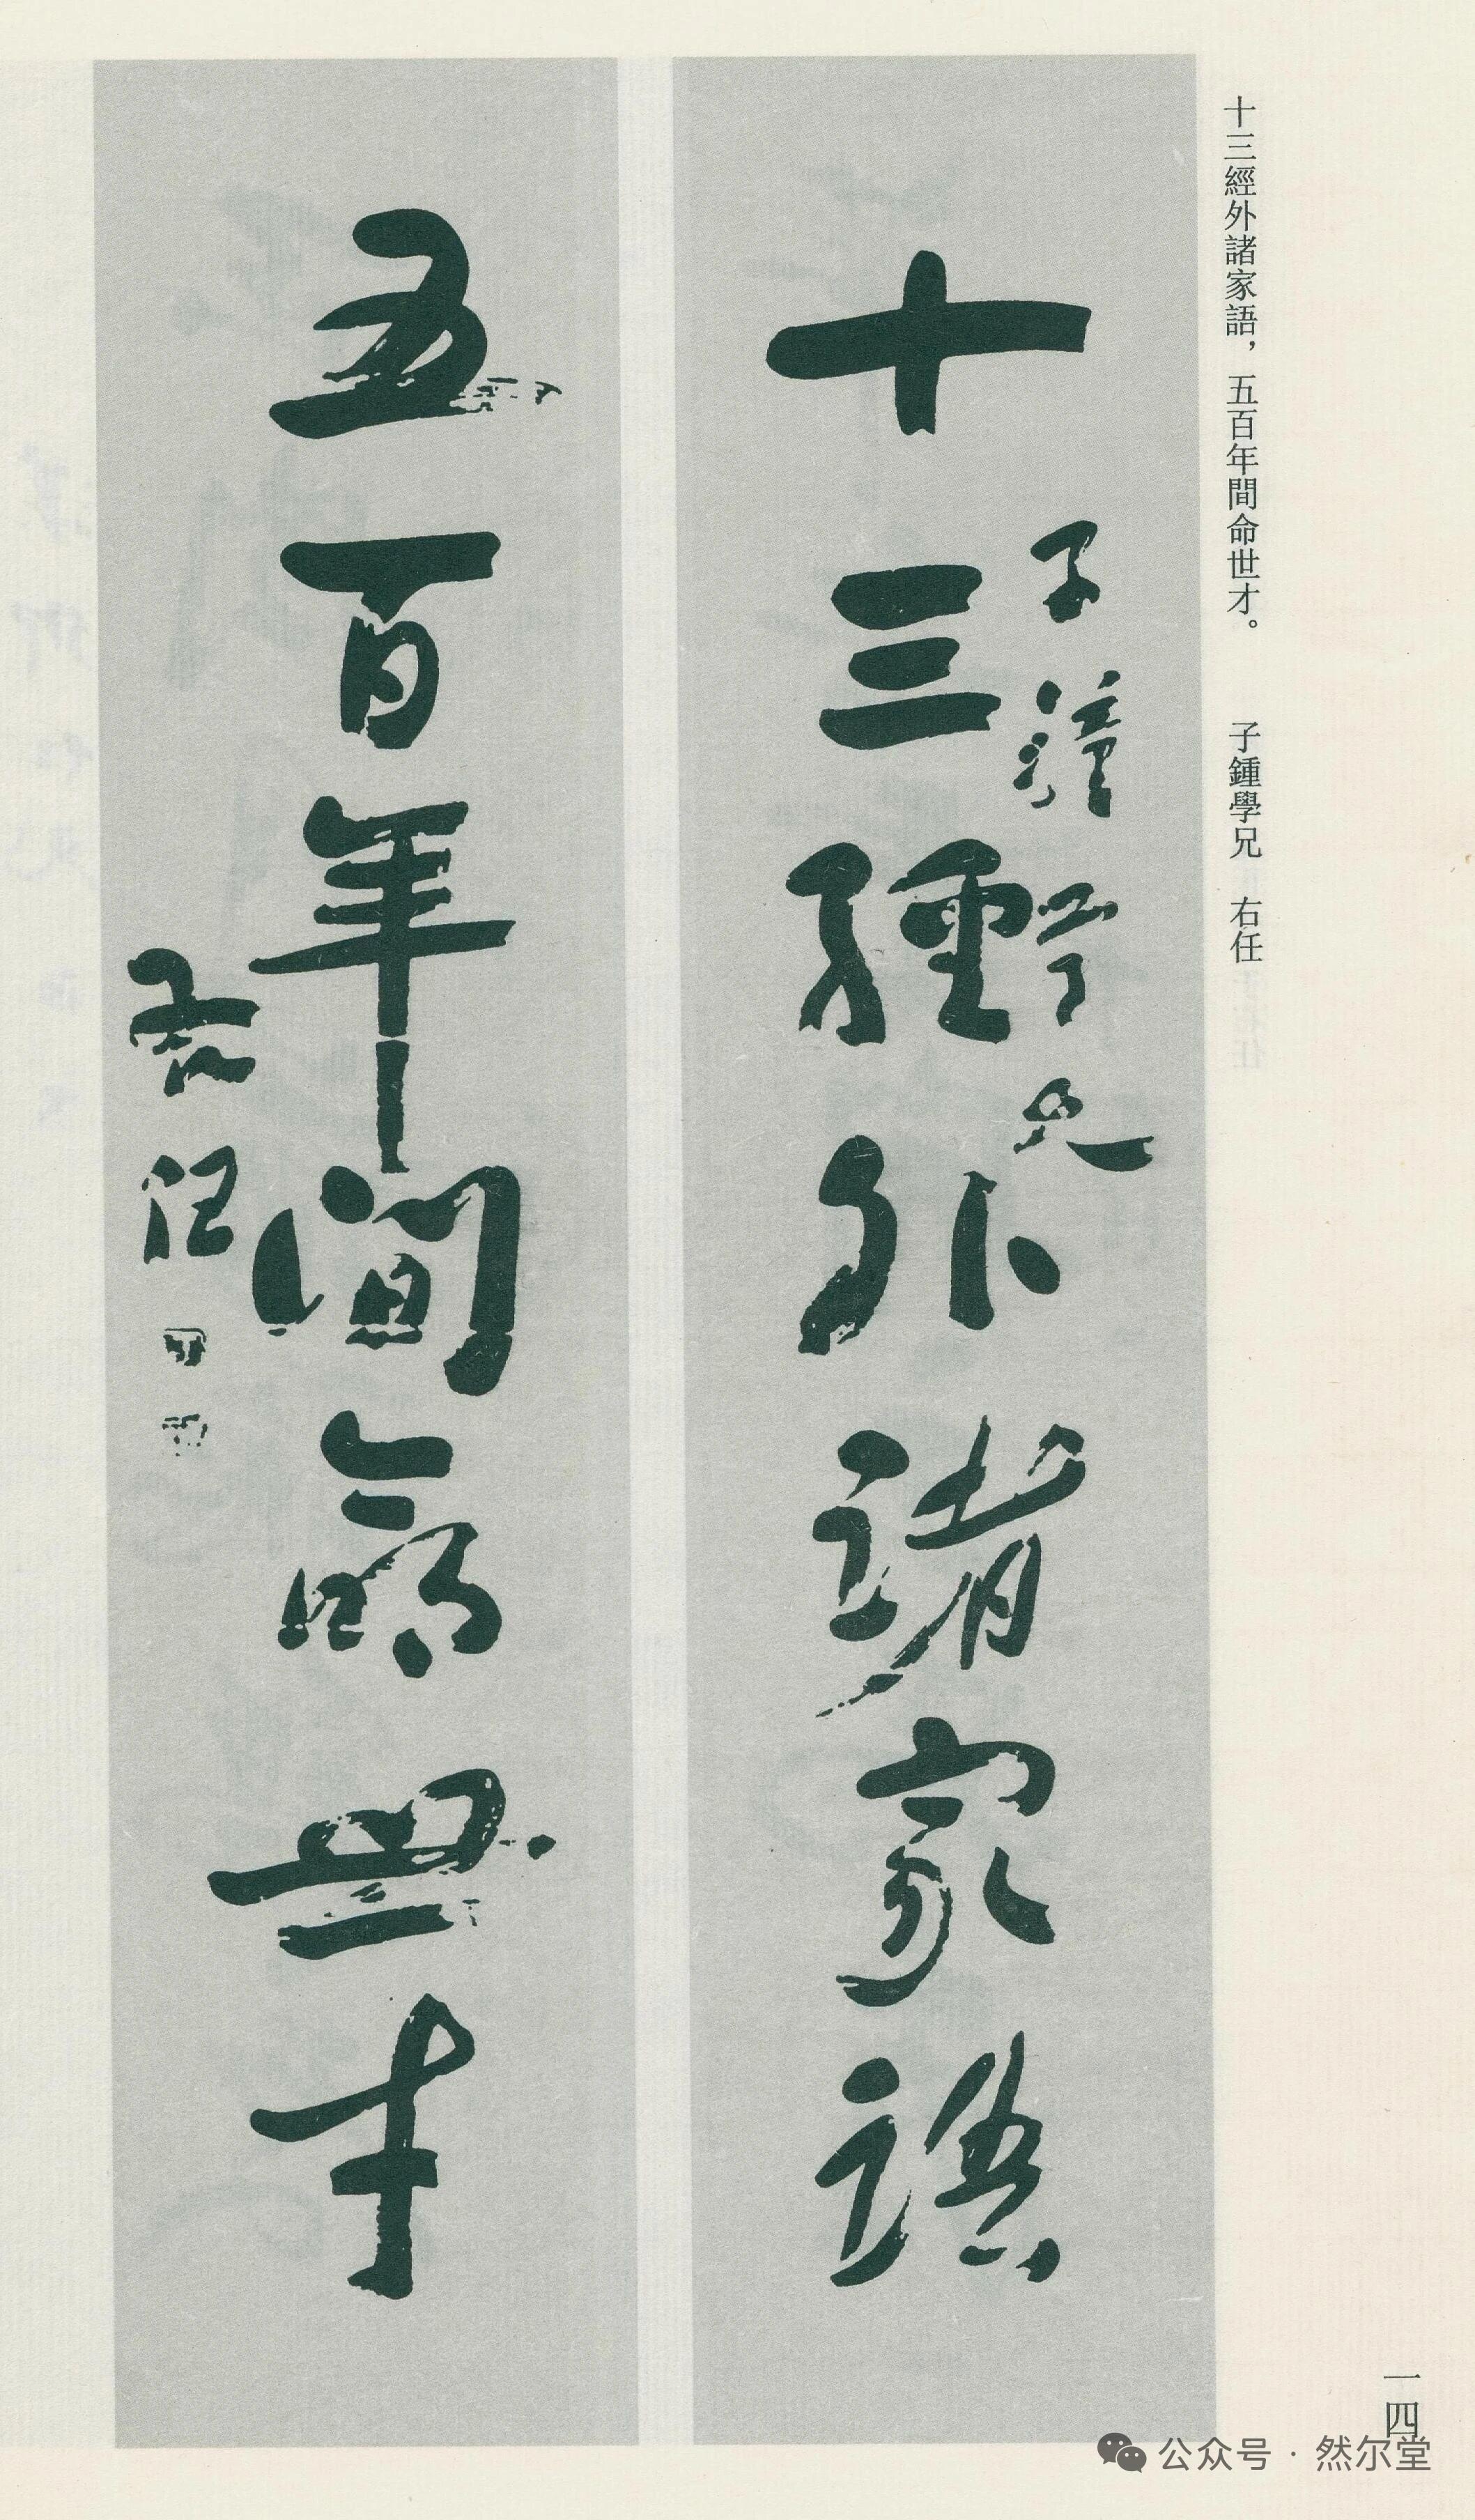 十三經外諸家語，五百年間命世才。　子鍾學兄　右任
子鍾學兄
十三經外諸家語
五百年間命世才
右任
一四
公众号·然尔堂